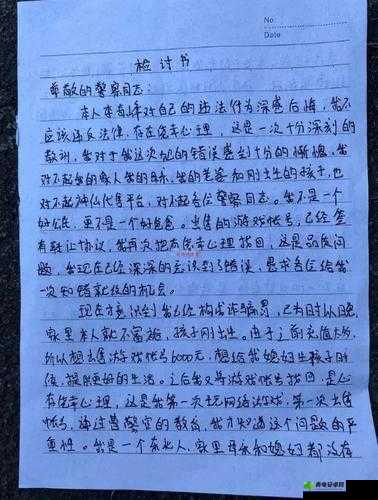 No:
Date
检讨书
尊敬的警察同志:
本人李有峰对自己的违法行为深感后悔,我不
应该违反法律,存在侥幸心理,这是一次十分深刻的
教训,我对于我这次犯的错误感到十分的惭愧,我
对不起我的家人我的母亲,我的老婆和刚出生的孩子,也
对不起神仙代售平台,对不起各位警察同志。我不是一个
好公民,更不是一个好爸爸。出售的游戏帐号,已经签
有转让协议,我再次把有侥幸心理找回,这是品质问
题,我现在已经深深的意识到了错误,恳求各位给我
一次知错就改的机会。
现在意识到我已经构成诈骗罪,已为时以晚,
家里本人就不富裕,孩子刚出生。由于之前充值太多,
所以想出售游戏帐号6000元,想给我媳妇生孩子时
候,提供更好的生活。之后我又将游戏帐号找回,是心
存侥幸心理,这是我第一次玩网络游戏,第一次出售
帐号,通过警官的教育,我才知道这个问题的严
重性。我是一个东北人,家里母亲和媳妇都没有